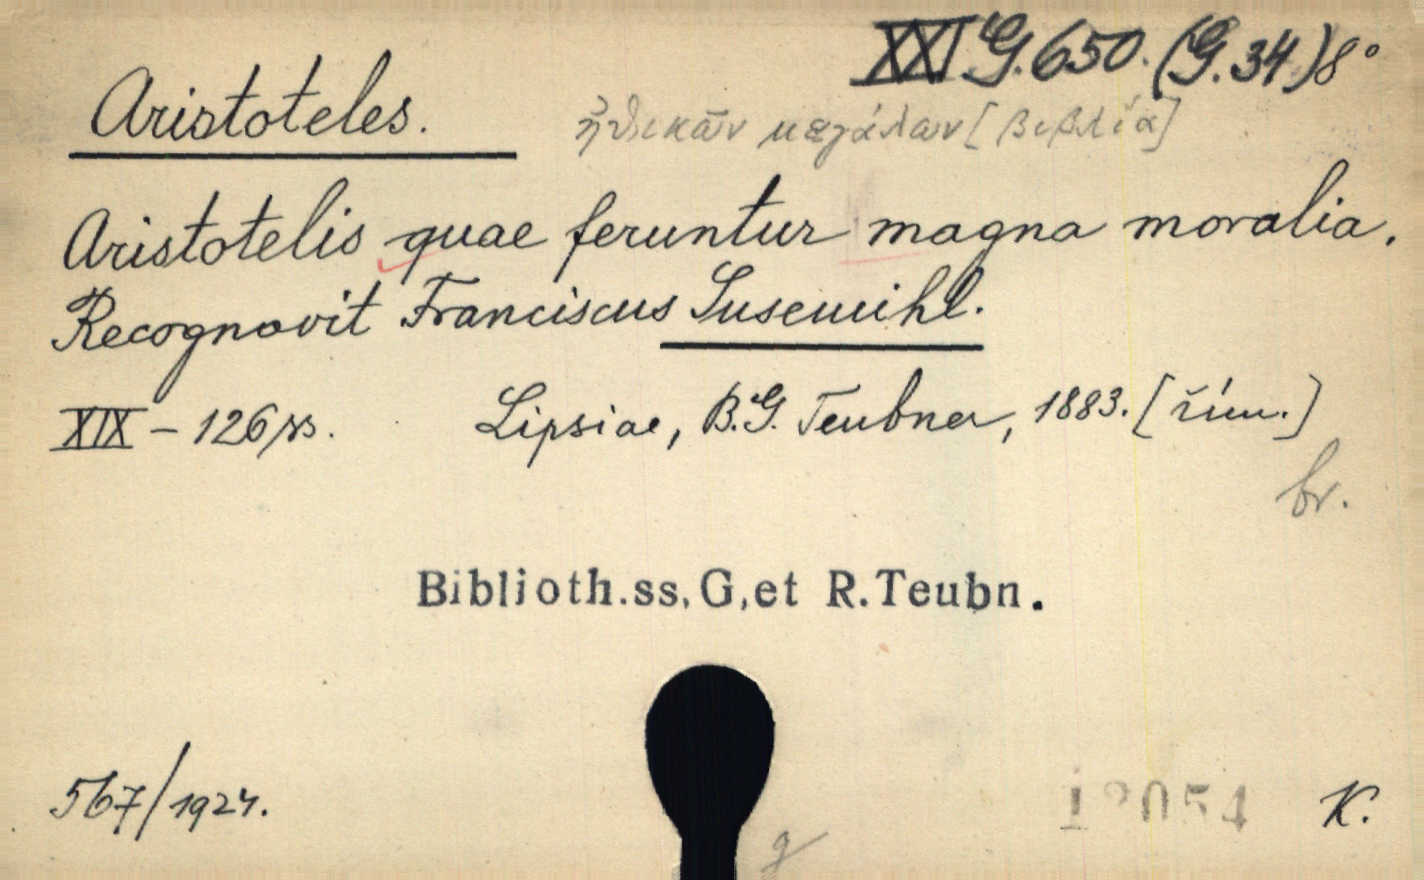 XXI G. 650. (G. 34) 8°
Aristoteles.
ἠθικῶν μεγάλων [βιβλία]
Aristotelis quae feruntur magna moralia.
Recognovit Franciscus Susemihl.
XIX – 126 ss. Lipsiae, B. G. Teubner, 1883. [řím.]
br.
Biblioth.ss,G,et R.Teubn.
567/1927. 12054 K.
g